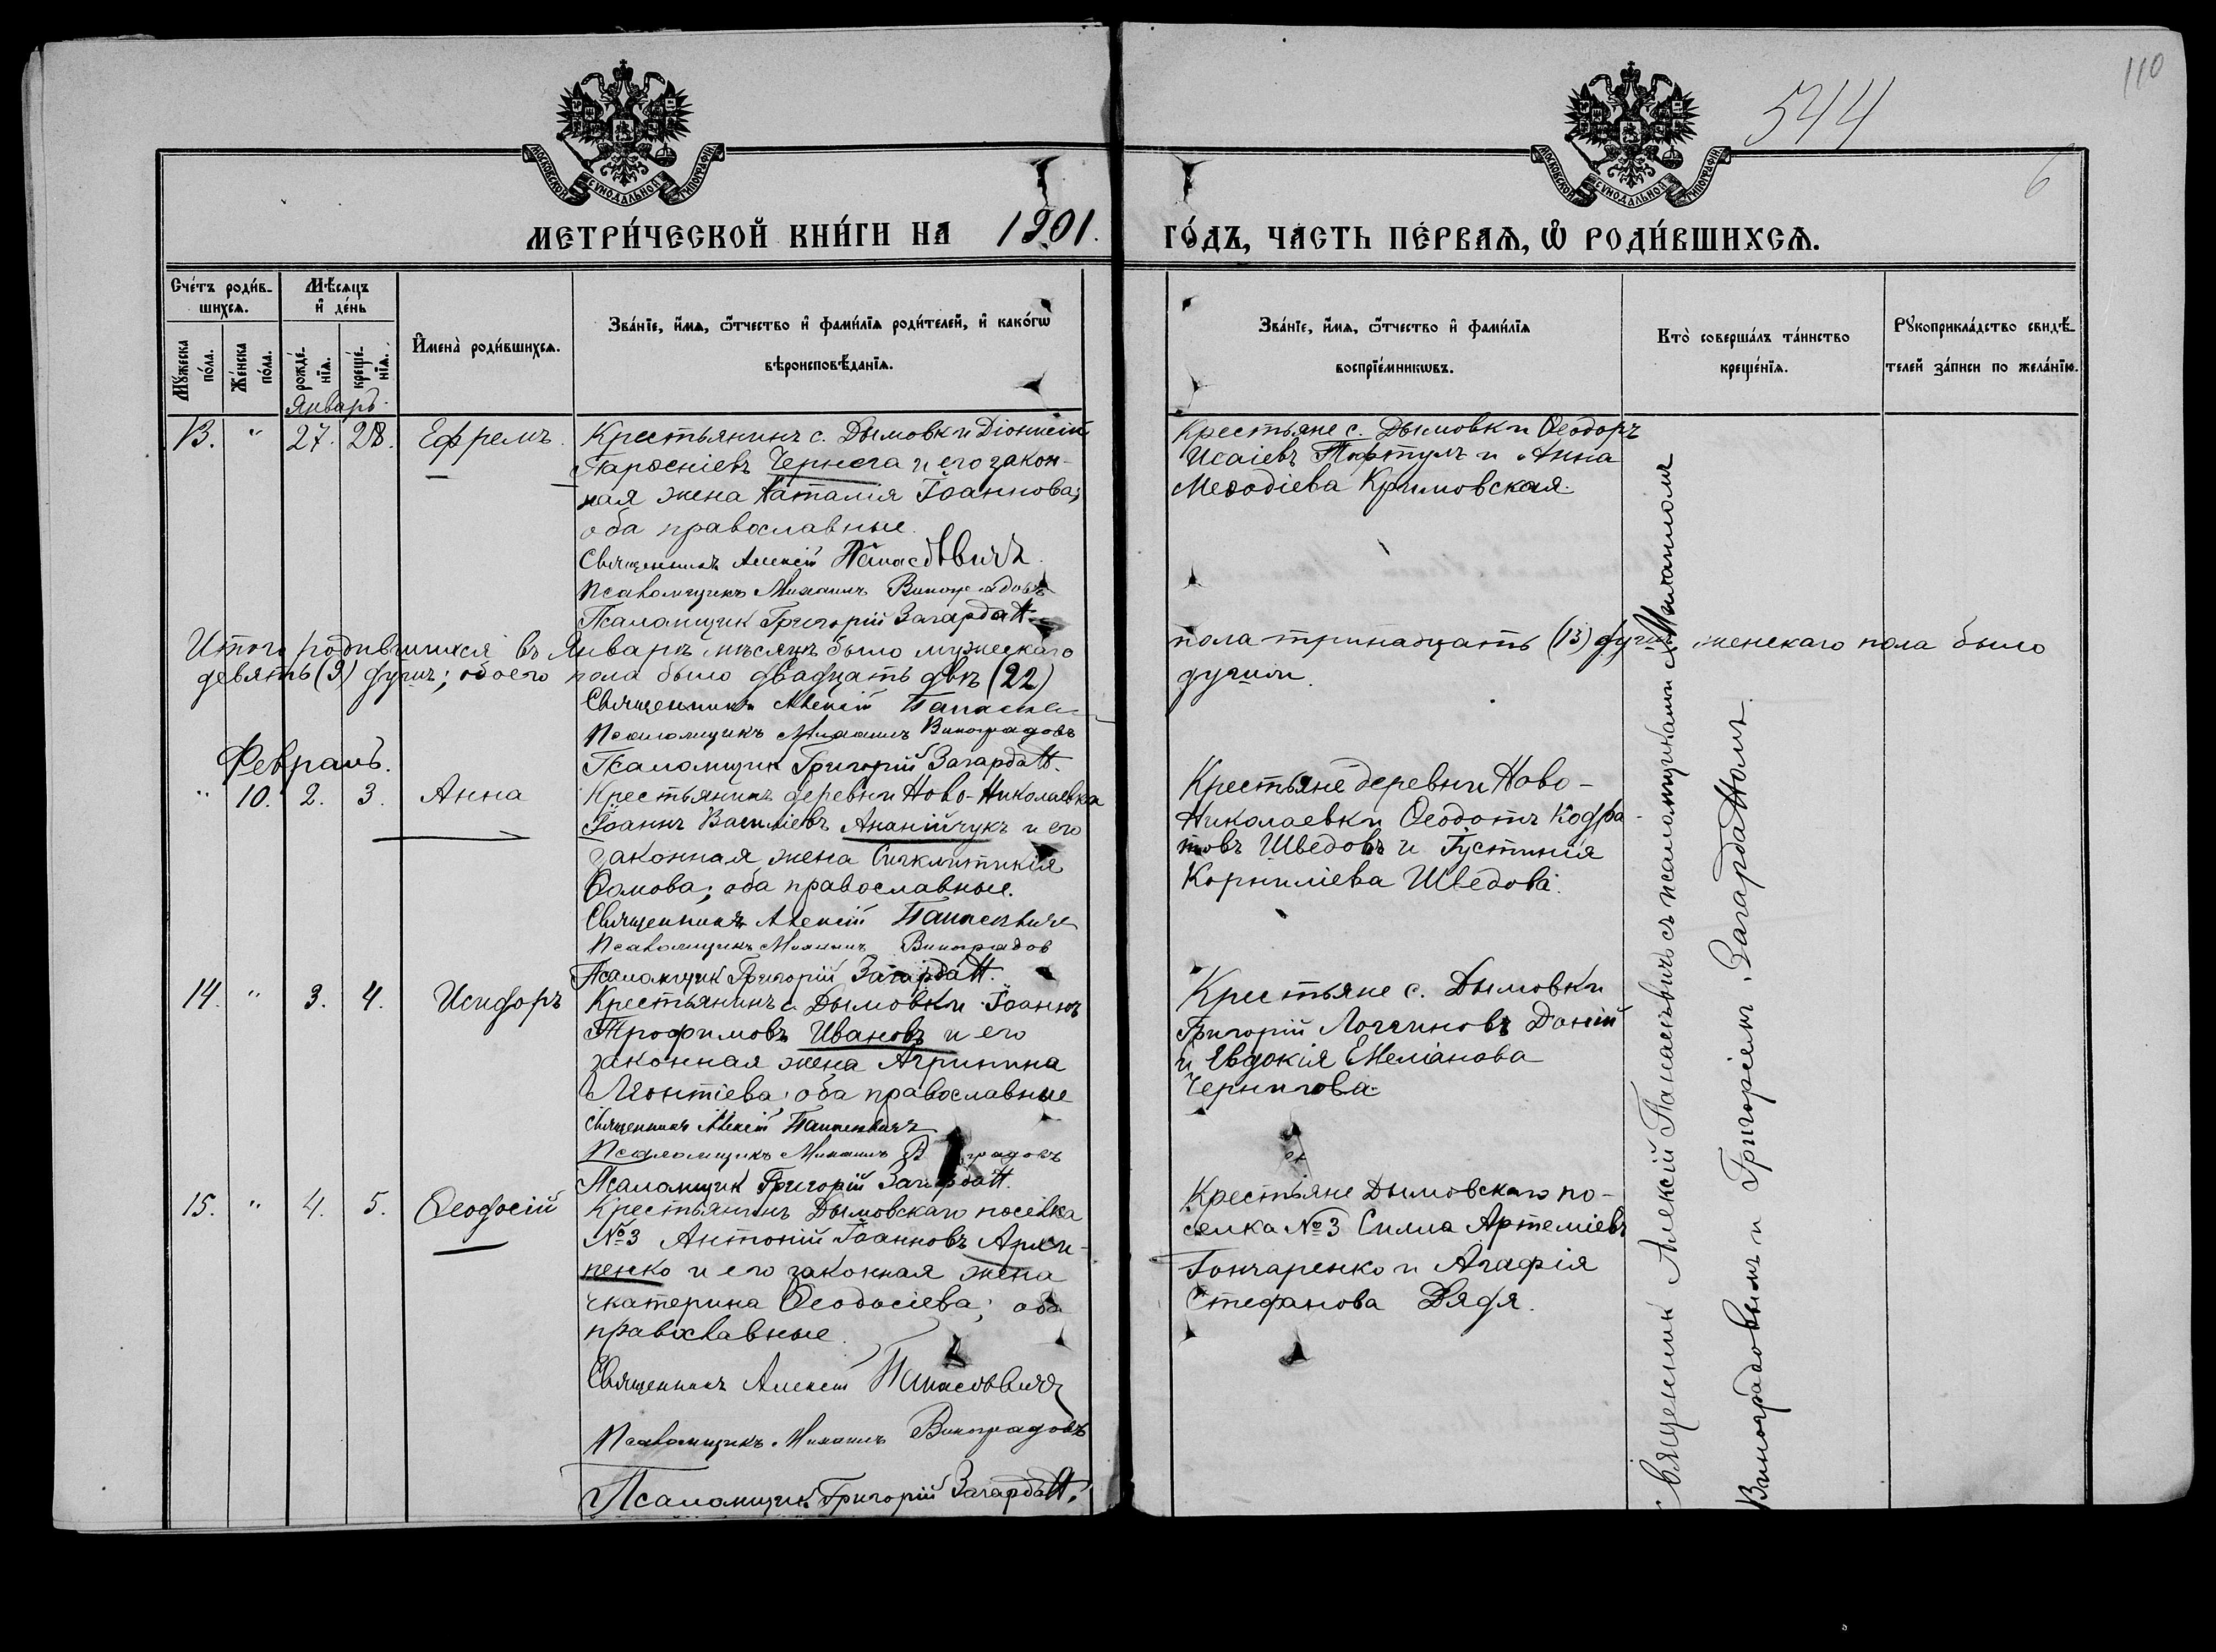 110
544
6
МОСКОВСКОЙ СѴНОДАЛЬНОЙ ТИПОГРАФІИ
МОСКОВСКОЙ СѴНОДАЛЬНОЙ ТИПОГРАФІИ
МЕТРИ́ЧЕСКОЙ КНИ́ГИ НА 1901.
ГО́ДЪ, ЧА́СТЬ ПЕ́РВАѦ, Ѽ РОДИ́ВШИХСѦ.
Сче́тъ роди́в-
шихсѧ.
Мѣ́сѧцъ
и҆ де́нь
Мꙋ́жеска
по́ла.
Же́нска
по́ла.
рожде́-
нїѧ.
креще́-
нїѧ.
И҆мена̀ роди́вшихсѧ.
Зва́нїе, и҆́мѧ, ѻ҆́тчество и҆ фами́лїѧ роди́телей, и҆ како́гѡ
вѣроисповѣ́данїѧ.
Зва́нїе, и҆́мѧ, ѻ҆́тчество и҆ фами́лїѧ
воспрїе́мникѡвъ.
Кто̀ соверша́лъ та́инство
креще́нїѧ.
Рꙋкоприкла́дство свидѣ́-
телей за́писи по жела́нїю.
Январь.
13. " 27. 28. Ефремъ.
Крестьянинъ с. Дымовки Діонисій
Парѳеніевъ Чернега и его закон-
ная жена Наталія Іоаннова;
оба православные.
Священникъ Алексій Панасевичъ.
Псаломщикъ Михаилъ Виноградовъ
Псаломщик Григорій Загардан.
Крестьяне с. Дымовки Ѳеодоръ
Исаіевъ и Анна
Меѳодіева Кримовская.
Итого родившихся въ Январѣ мѣсяцѣ было мужескаго
пола тринадцать (13) душъ женскаго пола было
девять (9) душъ; обоего пола было двадцать двѣ (22)
души.
Священникъ Алексій
Псаломщикъ Михаилъ Виноградовъ
Псаломщик Григорій Загардан.
Февраль.
" 10. 2. 3. Анна
Крестьянинъ деревни Ново-Николаевки
Іоаннъ Василіевъ Ананійчукъ и его
законная жена Сигклитикія
Ѳомова; оба православные.
Священникъ Алексій Панасевичъ
Псаломщикъ Михаилъ Виноградов
Псаломщик Григорій Загардан.
Крестьяне деревни Ново-
Николаевки Ѳеодотъ Кодра-
товъ Шведовъ и Іустинія
Корниліева Шведова.
14. " 3. 4. Исидоръ
Крестьянинъ с. Дымовки Іоаннъ
Трофимовъ Ивановъ и его
законная жена Агрипина
Леонтіева; оба православные
Священникъ Алексій Панасевичъ
Псаломщикъ Михаилъ Виноградовъ
Псаломщик Григорій Загардан.
Крестьяне с. Дымовки
Григорій Логгиновъ
и Евдокія Емеліанова
Чернигова.
15. " 4. 5. Ѳеодосій
Крестьянинъ Дымовскаго посёлка
№ 3 Антоній Іоанновъ
пенко и его законная жена
Екатерина Ѳеодосіева; оба
православные.
Священникъ Алексій Панасевичъ
Псаломщикъ Михаилъ Виноградовъ
Псаломщик Григорій Загардан.
Крестьяне Дымовскаго по-
селка № 3 Силла Артеміевъ
Гончаренко и Агафія
Стефанова Дядя.
Священник Алексій Панасевичъ съ псаломщиками Михаиломъ
Виноградовымъ и Григоріемъ Загарданомъ.